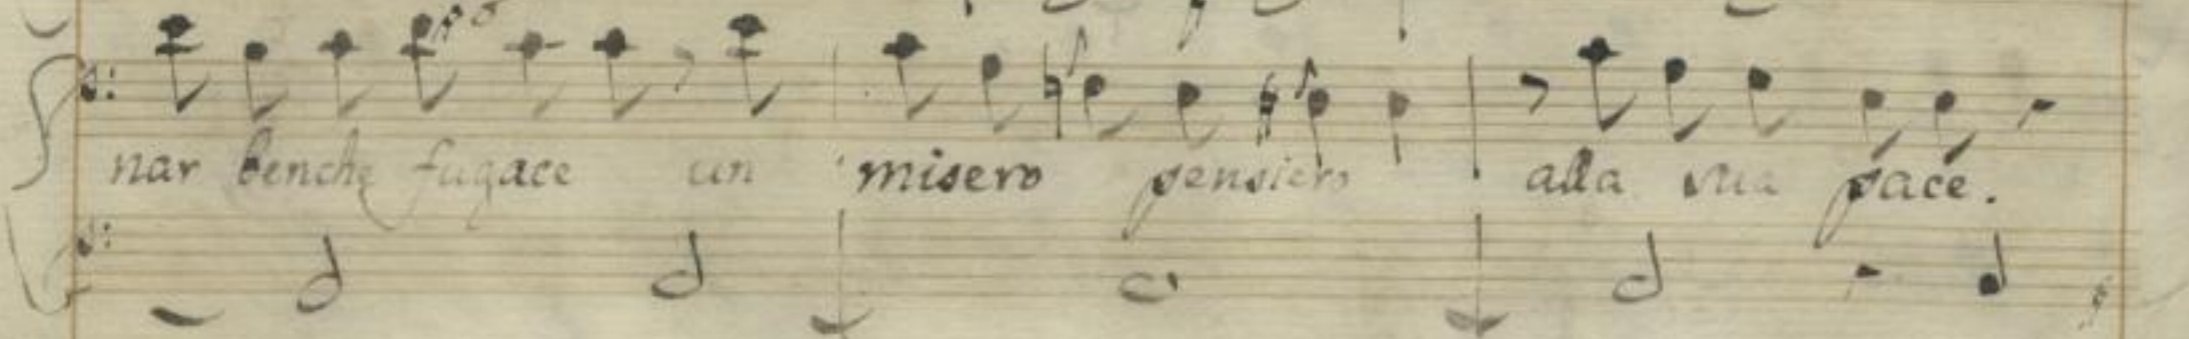 nar benche fugace un misero pensiero alla sua pace.